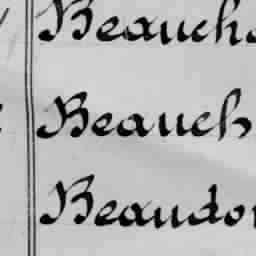 Beauch
Beauch
Beaudo